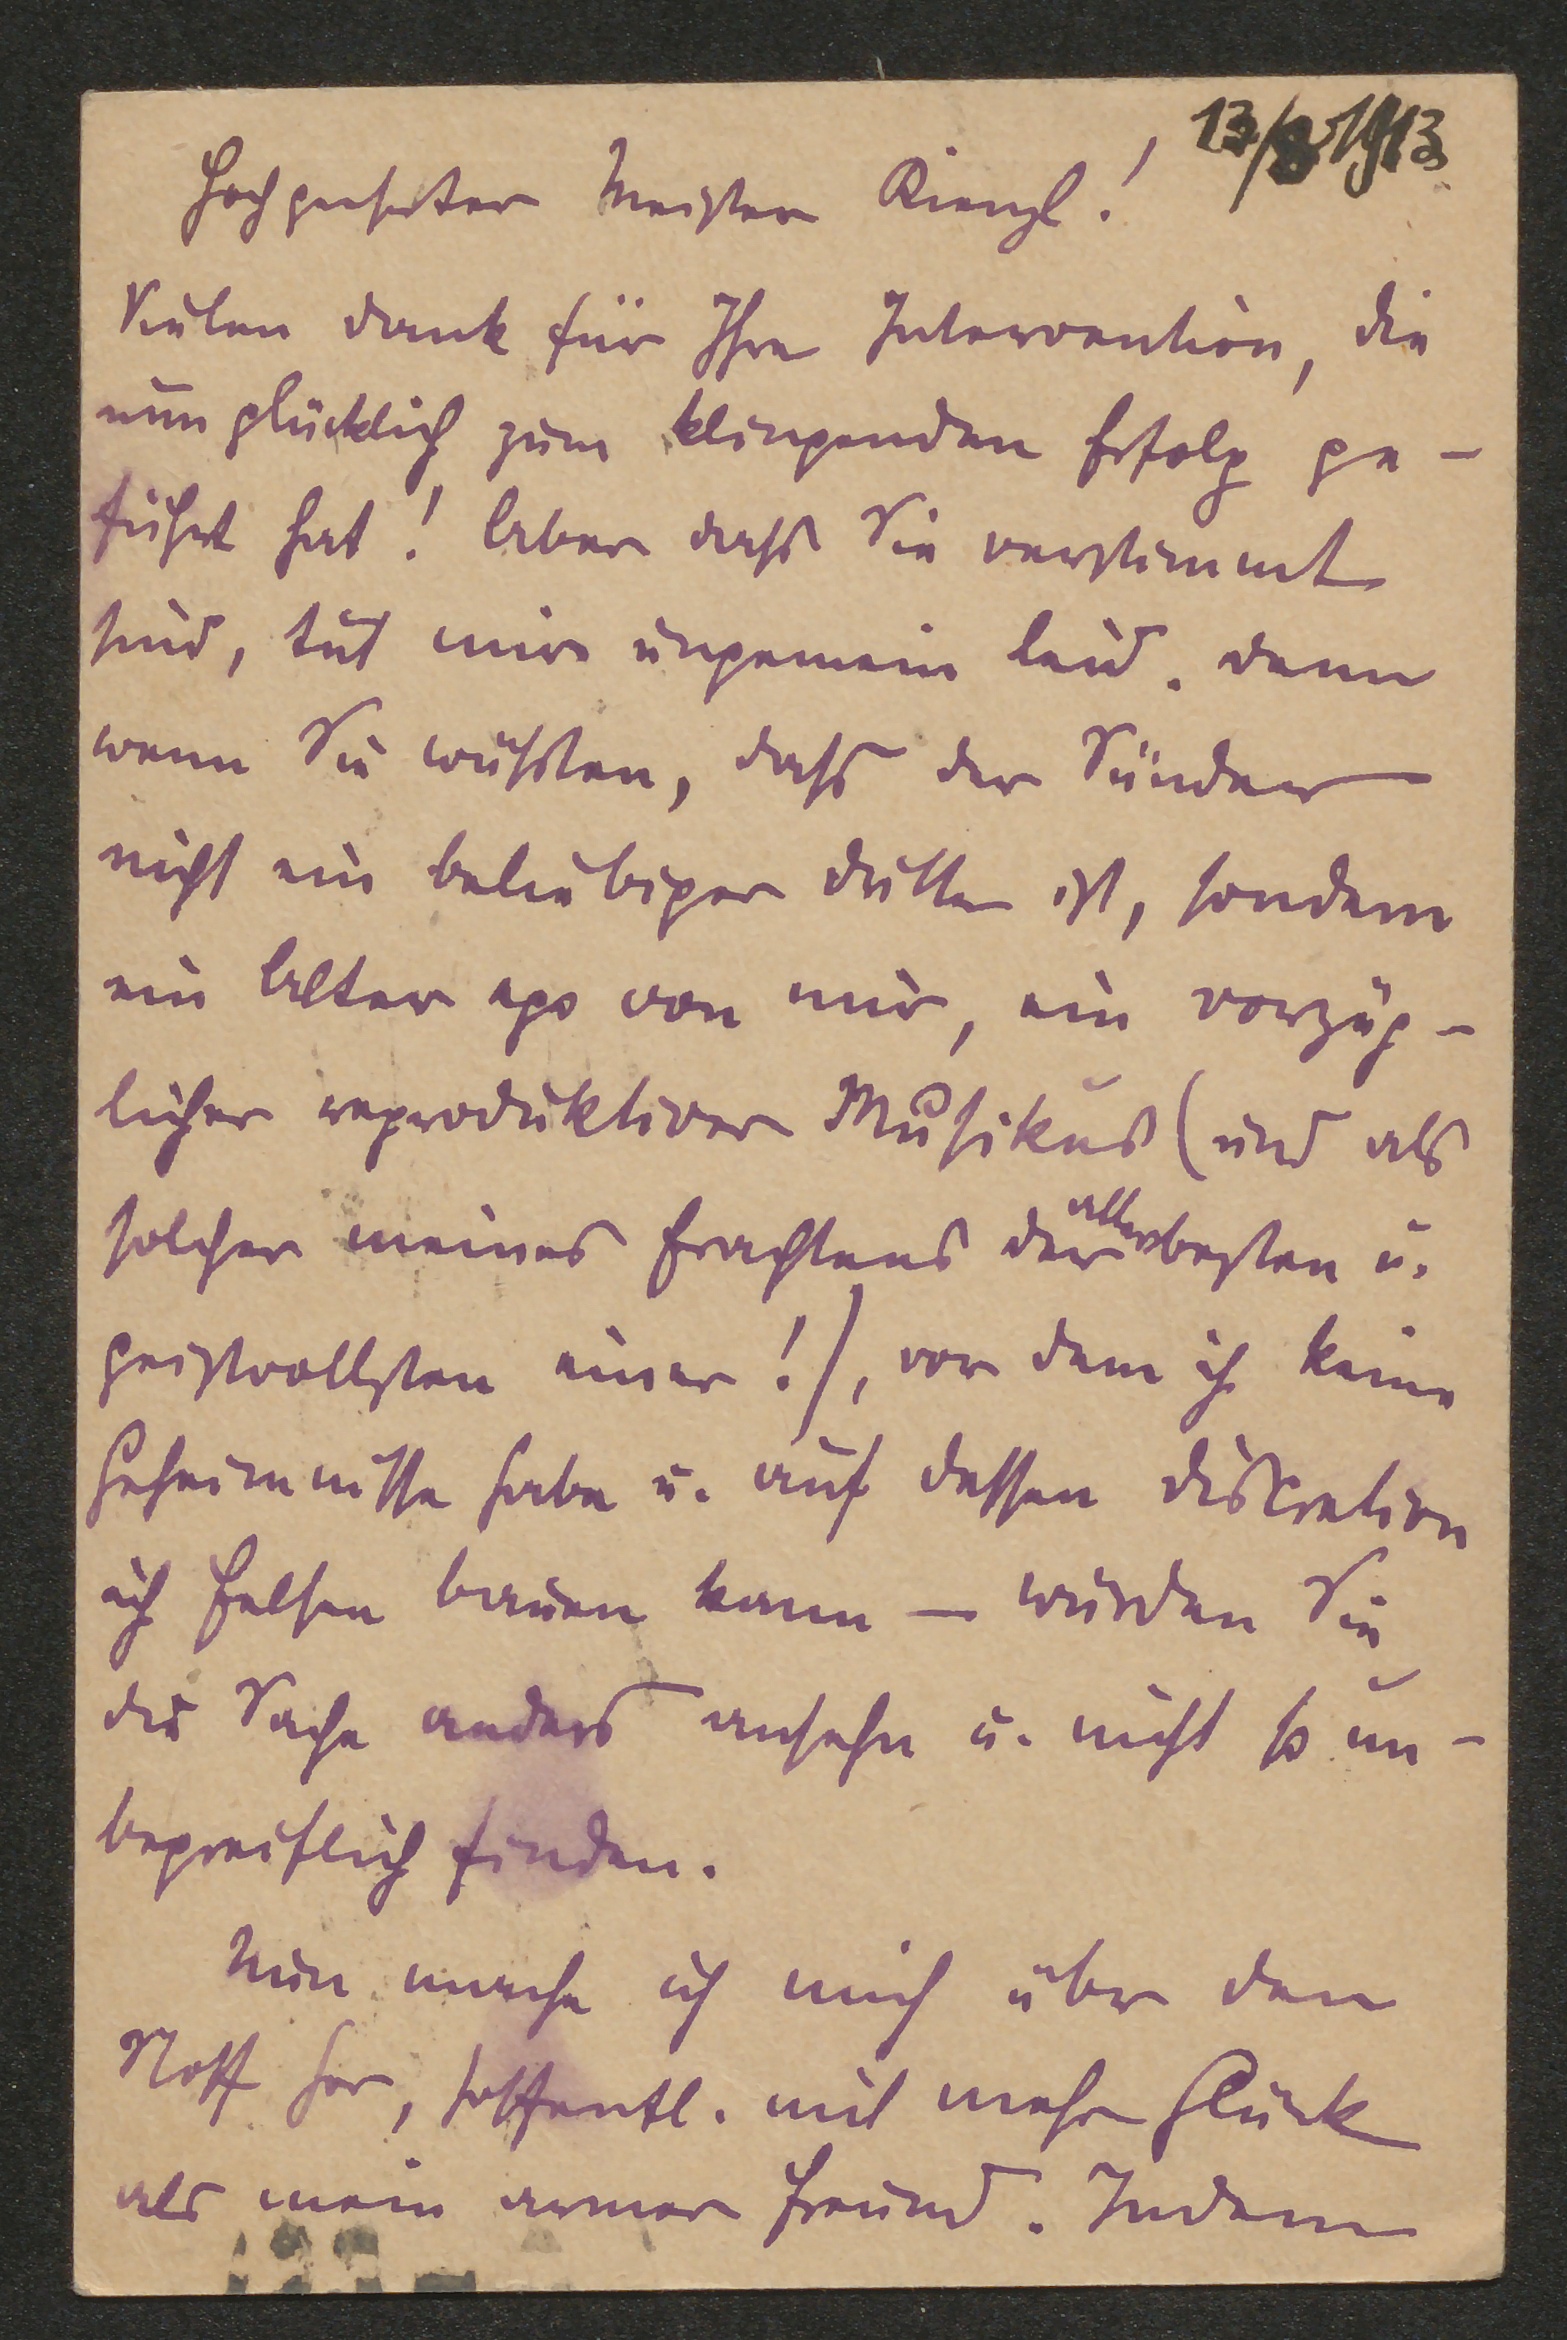 13/8 1913
Hochgeehrter Meister Kienzl!
Vielen Dank für Ihre Intervention, die
nun glücklich zum klingenden Erfolg ge-
führt hat! Aber dass Sie verstimmt
sind, tut mir ungemein leid. Denn
wenn Sie wüssten, dass der Sünder
nicht ein beliebiger Dritter ist, sondern
ein Alter ego von mir, ein vorzüg-
licher reproduktiver Musikus (und als
solcher meines Erachtens der allerbesten u.
geistvollsten einer!), vor dem ich keine
Geheimnisse habe u. auf dessen Discretion
ich Felsen bauen kann – würden Sie
die Sache anders ansehn u. nicht so un-
begreiflich finden.
Nun mache ich mich über den
Stoff her, hoffentl. mit mehr Glück
als mein armer Freund. Indem